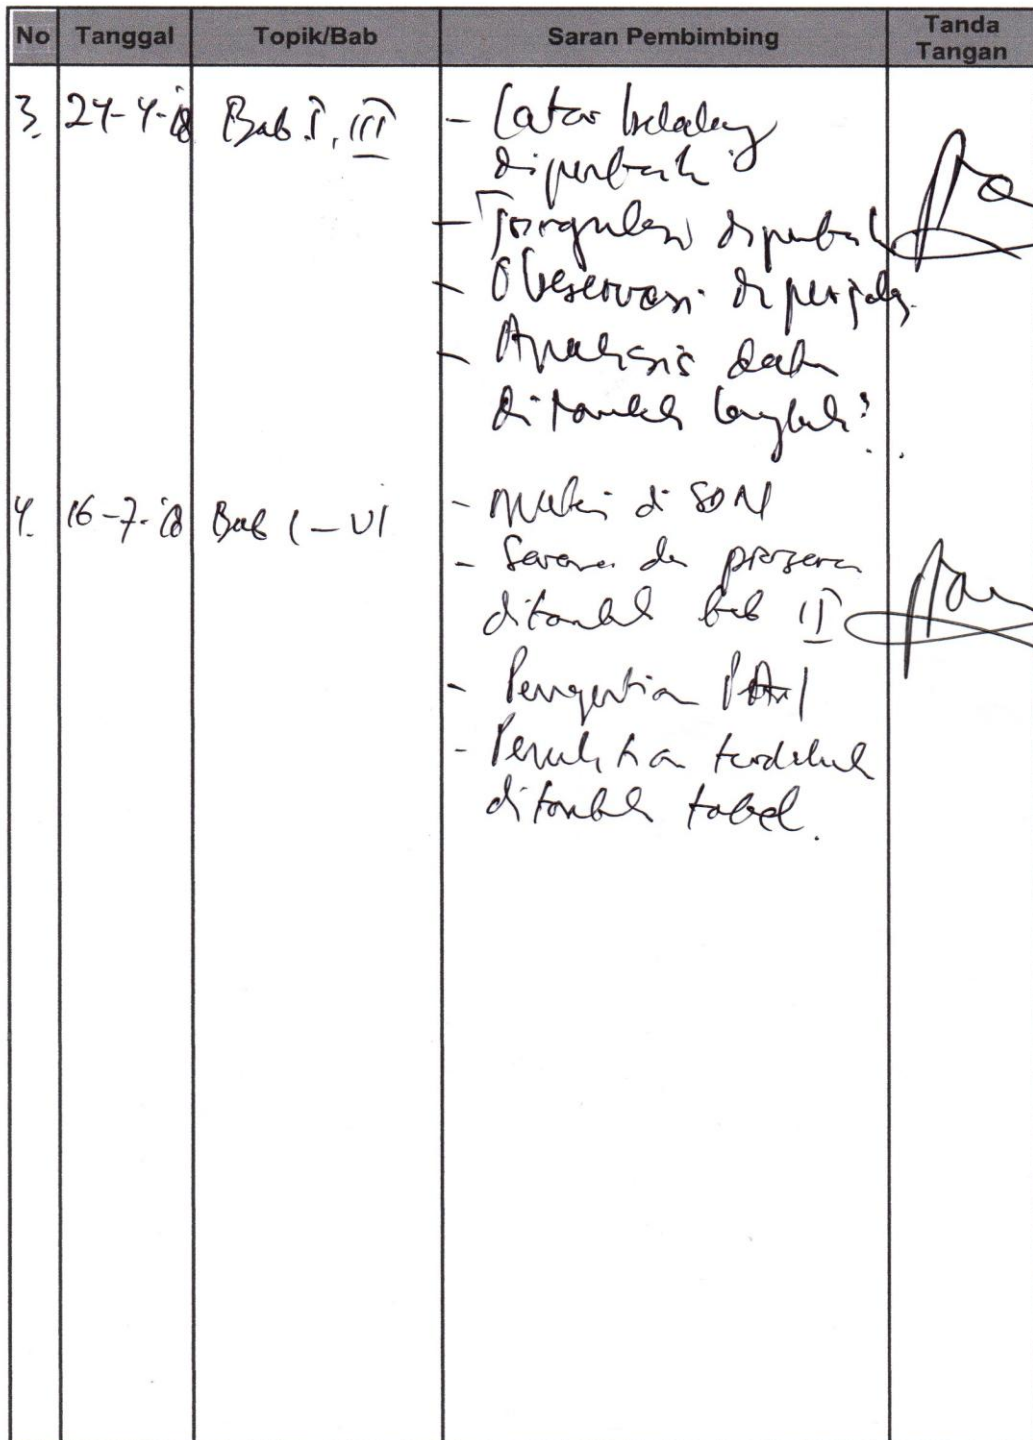 No Tanggal Topik/Bab Saran Pembimbing Tanda Tangan
3. 24-4-18 Bab I, III - Latar belakang
diperbaiki
- Triangulasi diperbaiki
- Observasi diperjelas.
- Analisis data
ditambah langkah²
4. 16-7-18 Bab I - VI - di SDN
- Sarana dan prasarana
ditambah bab II
- Pengertian PAI
- Penelitian terdahulu
ditambah tabel.